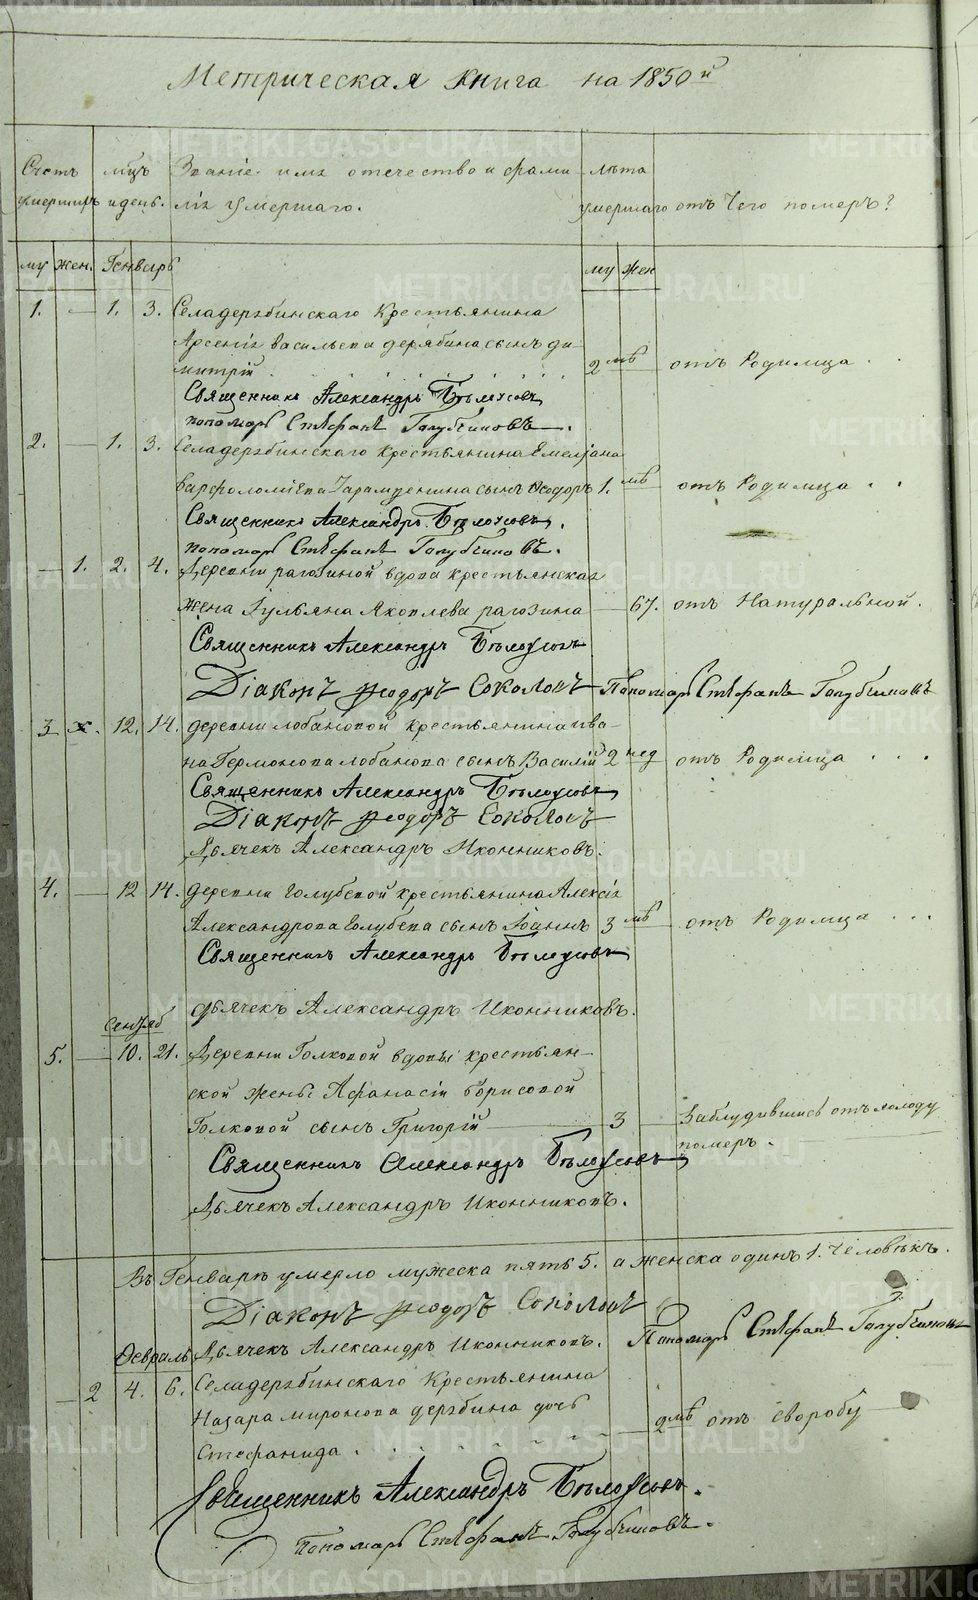 Метрическая книга на 1850й
Счетъ умершихъ
мцъ и день.
Званіе имя отечество и фами-
лія умершаго.
лѣта умершаго
отъ Чего померъ?
му жен. Генварь му жен
1. — 1. 3. Села дерябинскаго Крестьянина
Арсенія Васильева дерябина сынъ ди-
митрій . . . 2 мѣ отъ Родимца . .
Священникъ Александръ Бѣлоусовъ
пономарь Стефанъ Голубчиковъ.
2. — 1. 3. Села дерябинскаго крестьянина Емелјана
Варфоломіева сынъ Ѳеодоръ 1. мѣ отъ Родимца . .
Священникъ Александръ Бѣлоусовъ.
пономарь Стефанъ Голубчиковъ.
— 1. 2. 4. Деревни рагозиной вдова крестьянская
жена Іульяна Яковлева рагозина — 67. отъ Натуральной.
Священникъ Александръ Бѣлоусовъ
Діаконъ Ѳеодоръ Соколовъ Пономарь Стефанъ Голубчиковъ
3 х. 12. 14. деревни лобановой крестьянина ива-
на Гермонова лобанова сынъ Василій 2 нед отъ Родимца . . .
Священникъ Александръ Бѣлоусовъ
Діаконъ Ѳеодоръ Соколовъ
Дьячекъ Александръ Иконниковъ.
4. — 12 14. деревни голубевой крестьянина Алексія
Александрова Голубева сынъ Іоаннъ 3 мѣ отъ Родимца . . .
Священникъ Александръ Бѣлоусовъ
дьячекъ Александръ Иконниковъ.
5. — 10. 21. Деревни Голковой вдовы крестьян-
ской жены Афанасіи борисовой
Голковой сынъ Григорій — 3 Заблудившись отъ холоду
померъ.
Священникъ Александръ Бѣлоусовъ
Дьячекъ Александръ Иконниковъ.
Въ Генварѣ умерло мужеска пять 5. а женска одинъ 1. человѣкъ.
Діаконъ Ѳеодоръ Соколовъ
Дьячекъ Александръ Иконниковъ. Пономарь Стефанъ Голубчиковъ
Февраль
— 2 4. 6. Села дерябинскаго Крестьянина
Назара миронова дерябина дочь
Стефанида . . . — 2 мѣ отъ Еворобу
Священникъ Александръ Бѣлоусовъ.
пономарь Стефанъ Голубчиковъ.
METRIKI.GASO-URAL.RU